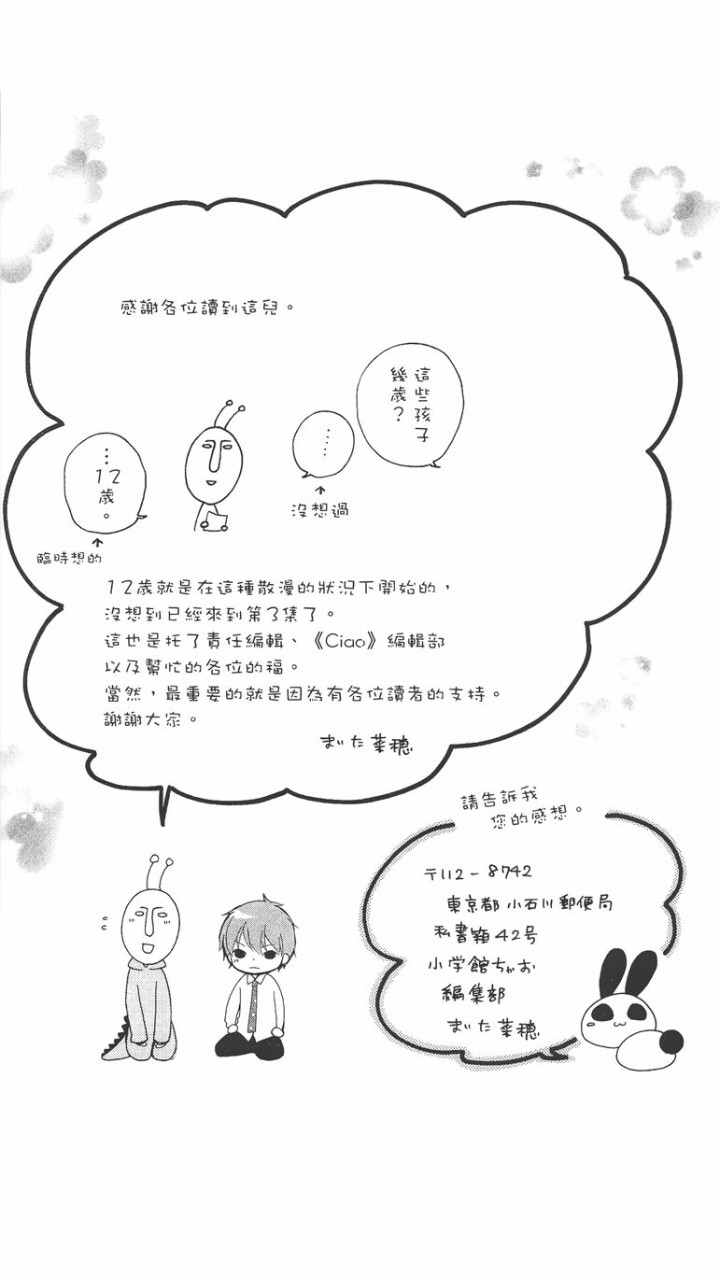 感謝各位讀到這兒。
這些孩子
幾歲?
……
沒想過
…12歲。
臨時想的
12歲就是在這種散漫的狀況下開始的,
沒想到已經來到第3集了。
這也是托了責任編輯、《Ciao》編輯部
以及幫忙的各位的福。
當然,最重要的就是因為有各位讀者的支持。
謝謝大家。
まいた菜穂
請告訴我
您的感想。
〒112-8742
東京都小石川郵便局
私書箱42号
小学館ちゃお
編集部
まいた菜穂